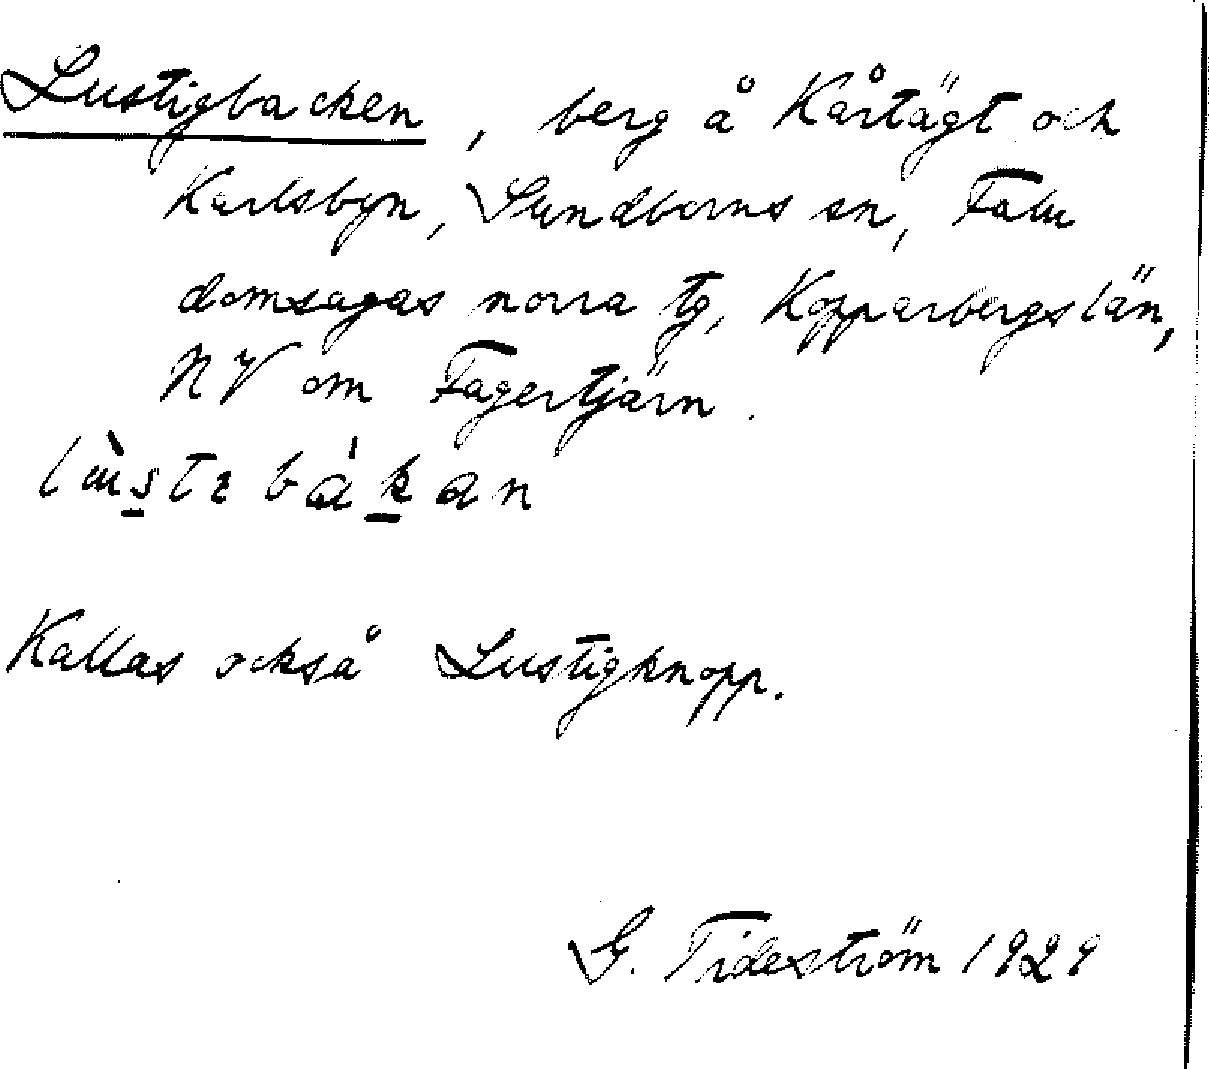 Lustigbacken, berg å Kårtägt och
Karlsbyn, Sundborns sn, Falu
domsagas norra tg, Kopparbergs län,
NV om Fagertjärn.
Kallas också Lustigknopp.
G. Tideström 1929